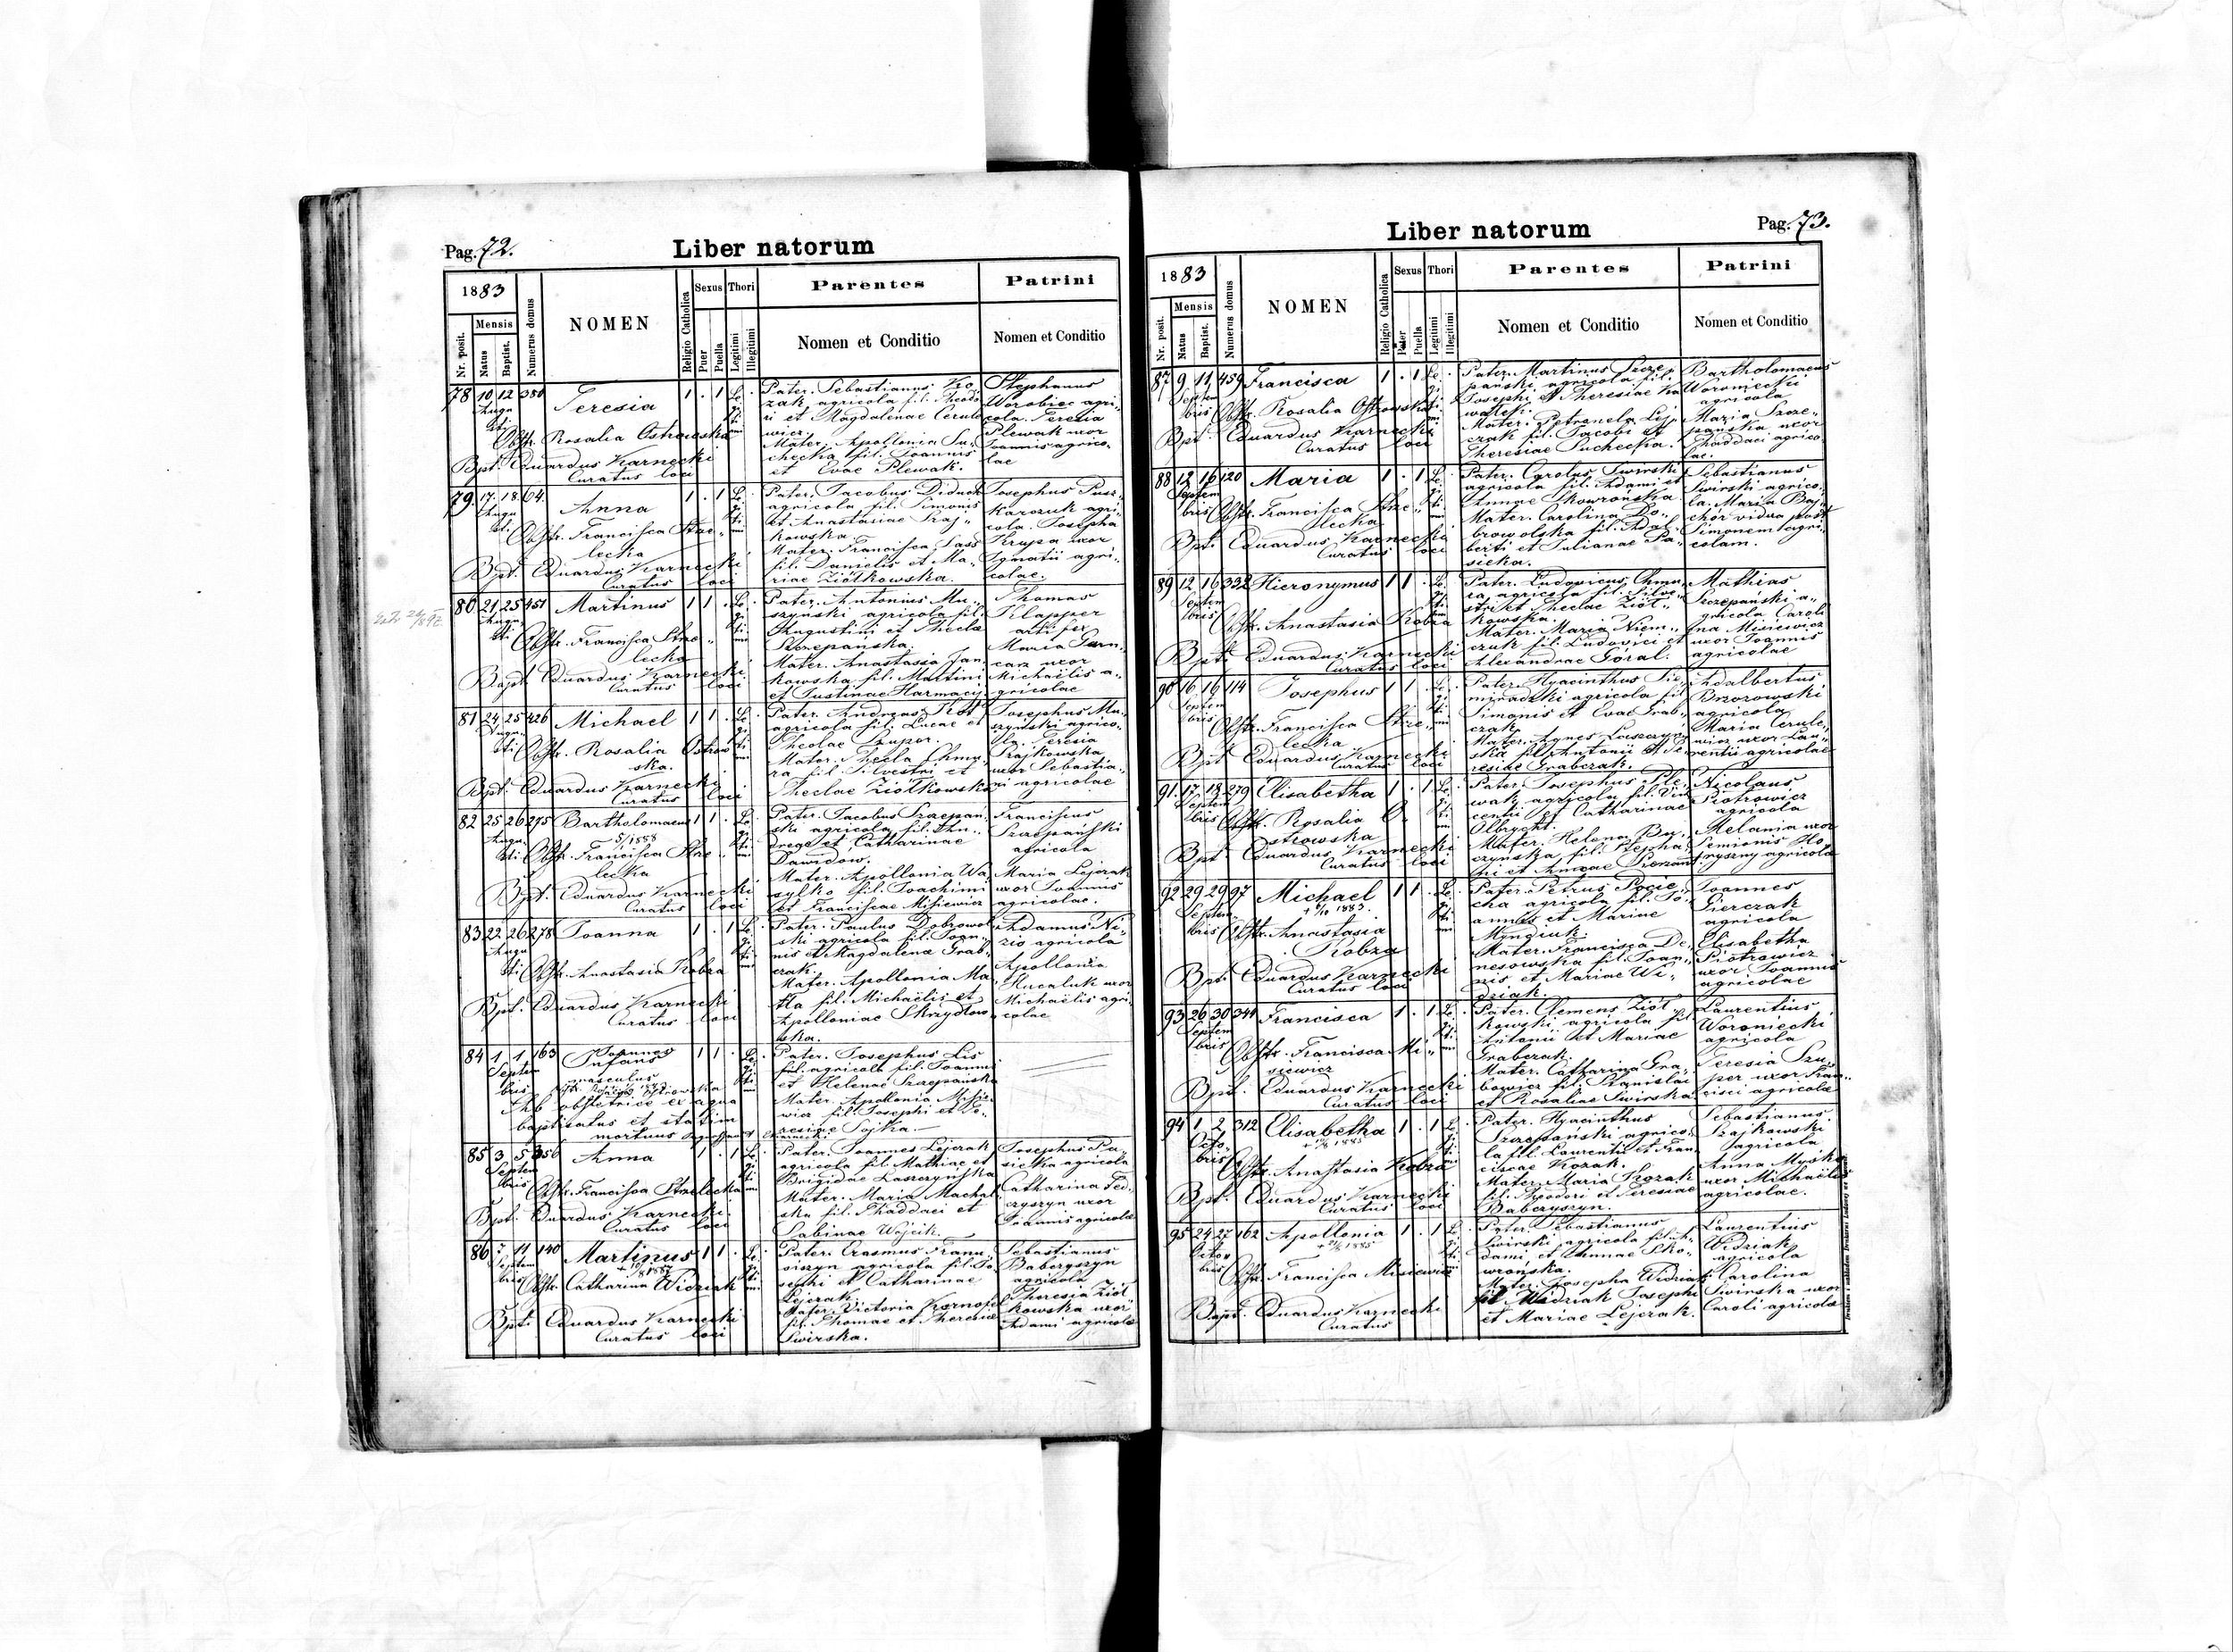 Pag. 72.
Liber natorum
1883
Nr. posit.
Mensis
Natus
Baptist.
Numerus domus
NOMEN
Religio Catholica
Sexus
Puer
Puella
Thori
Legitimi
Illegitimi
Parentes
Nomen et Conditio
Patrini
Nomen et Conditio
78 10 12 380 Teresia 1 . 1
Augu
sti
Obstr. Rosalia Ostrowska
Bpt. Eduardus Karnecki
Curatus loci
Pater. Sebastianus Ko
zak agricola fil. Theodo
ri et Magdalenae Cerule
wicz.
Mater. Apollonia Su
checka fil. Joannis
et Evae Plewak.
Stephanus
Worobiec agri
cola. Teresia
Plewak uxor
Joannis agrico
lae
79. 17. 18. 64. Anna 1 . 1
Augu
sti
Obstr. Francisca Strze
lecka
Bpt. Eduardus Karnecki
Curatus loci
Pater. Jacobus Diduch
agricola fil. Simonis
et Anastasiae Szaj
kowska
Mater. Francisca Sass
fil. Danielis et Ma
riae Ziółkowska.
Josephus Pusz
karczuk agri
cola. Josepha
Krupa uxor
Ignatii agri
colae.
80 21 25 451 Martinus 1 1 .
Augu
sti
Obstr. Francisca Strze
lecka
Bapt. Eduardus Karnecki
Curatus loci
Pater. Antonius Mu
szyński agricola fil.
Augustini et Theclae
Szczepańska.
Mater. Anastasia Jan
kowska fil. Martini
et Justinae Harmacij
Thomas
Klapper
artifex
Maria Garn
carz uxor
Michaëlis a
gricolae
81 24 25 426 Michael 1 1 .
Augu
sti
Obstr. Rosalia Ostrow
ska.
Bpt. Eduardus Karnecki
Curatus loci
Pater. Andreas Kot
agricola fil. Lucae et
Theclae Szuper.
Mater. Thecla Chmu
ra fil. Silvestri et
Theclae Ziółkowska
Josephus Mu
szyński agrico
la. Teresia
uxor Sebastia
ni agricolae
82 25 26 295 Bartholomaeus 1 1 .
Augu
sti
Obstr. Francisca Strze
lecka
Bpt. Eduardus Karnecki
Curatus loci
Pater. Jacobus Szczepan
ski agricola fil. An
dreae et Catharinae
Dawidow.
Mater. Apollonia Wa
sylko fil. Joachimi
et Franciscae Misiewicz
Franciscus
Szczepański
agricola
Maria Lejczak
uxor Joannis
agricolae.
83 22 26 278 Joanna 1 . 1
Augu
sti
Obstr. Anastasia Kobza
Bpt. Eduardus Karnecki
Curatus loci
Pater. Paulus Dobrowol
ski agricola fil. Joan
nis et Magdalenae Grab
czak.
Mater. Apollonia Ma
tla fil. Michaëlis et
Apolloniae Skrzydłow
ska.
Adamus Ni
zio agricola
Apollonia
Hucaluk uxor
Michaëlis agri
colae
84 1 1 163 Joannes 1 1 .
Septem
bris
Infans
masculus
Ab obstetrice ex aqua
baptisatus et statim
mortuus
Pater. Josephus Lis
agricola fil. Joannis
et Helenae Szczepańska
Mater. Apollonia Misie
wicz fil. Josephi et Te
resiae Sojka.
85 3 5 356 Anna 1 . 1
Septem
bris
Obstr. Francisca Strzelecka
Bpt. Eduardus Karnecki
Curatus loci
Pater. Joannes Lejczak
agricola fil. Mathiae et
Brigidae Laszczyńska
Mater. Maria Machal
ska fil. Thaddaei et
Sabinae Wójcik.
Josephus Pa
siecka agricola
Catharina Fed
czyszyn uxor
Joannis agricolae
86 7 11 140 Martinus 1 1 .
Septem
bris
Obstr. Catharina Widziak
Bpt. Eduardus Karnecki
Curatus loci
Pater. Erasmus Franu
siszyn agricola fil. Jo
sephi et Catharinae
Lejczak.
Mater. Victoria Kornafel
fil. Thomae et Theresiae
Swirska.
Sebastianus
Babczyszyn
agricola
Theresia Ziół
kowska uxor
Adami agricolae
Liber natorum
Pag. 73.
1883
Nr. posit.
Mensis
Natus
Baptist.
Numerus domus
NOMEN
Religio Catholica
Sexus
Puer
Puella
Thori
Legitimi
Illegitimi
Parentes
Nomen et Conditio
Patrini
Nomen et Conditio
87 9 11 459 Francisca 1 . 1
Septem
bris
Obstr. Rosalia Ostrowska
Bpt. Eduardus Karnecki
Curatus loci
Pater. Martinus Szcze
pański agricola fil.
Josephi et Theresiae Ko
walek.
Mater. Petronela Lej
czak fil. Jacobi et
Theresiae Suchecka.
Bartholomaeus
Woroniecki
agricola
Maria Szcze
pańska uxor
Thaddaei agrico
lae.
88 12 16 120 Maria 1 . 1
Septem
bris
Obstr. Francisca Strze
lecka
Bpt. Eduardus Karnecki
Curatus loci
Pater. Carolus Swirski
agricola fil. Adami et
Annae Skowrońska
Mater. Carolina Do
browolska fil. Adal
berti et Julianae Pa
siecka.
Sebastianus
Swirski agrico
la. Maria Baj
chór vidua post
Simonem agri
colam.
89 12 16 332 Hieronymus 1 1 .
Septem
bris
Obstr. Anastasia Kobza
Bpt. Eduardus Karnecki
Curatus loci
Pater. Ludovicus Chmu
ra agricola fil. Silve
stri et Theclae Ziół
kowska.
Mater. Maria Niem
czuk fil. Ludovici et
Alexandrae Góral.
Mathias
Szczepański a
gricola Caroli
na Misiewicz
uxor Joannis
agricolae
90 16 16 114 Josephus 1 1 .
Septem
bris
Obstr. Francisca Strze
lecka
Bpt. Eduardus Karnecki
Curatus loci
Pater. Hyacinthus Sie
miradzki agricola fil
Simonis et Evae Grab
czak
Mater. Agnes Laszczyń
ska fil. Antonii et Te
resiae Grabczak.
Adalbertus
Brzozowski
agricola
Maria Cerule
wicz uxor Lau
rentii agricolae
91. 17 18 279 Elisabetha 1 . 1
Septem
bris
Obstr. Rosalia O
strowska
Bpt. Eduardus Karnecki
Curatus loci
Pater. Josephus Ple
wak agricola fil. Vin
centii et Catharinae
Olbrycht.
Mater. Helena Bu
czyńska fil. Stepha
ni et Annae
Nicolaus
Piotrowicz
agricola
Melania uxor
Semionis Ho
ryszny agricolae
92 29 29 97 Michael 1 1 .
Septem
bris
Obstr. Anastasia
Kobza
Bpt. Eduardus Karnecki
Curatus loci
Pater. Petrus Pocie
cha agricola fil. Jo
annis et Mariae
Myndiuk.
Mater. Francisca De
nesowska fil. Joan
nis et Mariae Wi
dziak.
Joannes
Gierczak
agricola
Elisabetha
Piotrowicz
uxor Joannis
agricolae
93 26 30 344 Francisca 1 . 1
Septem
bris
Obstr. Francisca Mi
siewicz
Bpt. Eduardus Karnecki
Curatus loci
Pater. Clemens Ziół
kowski agricola fil
Antonii et Mariae
Grabczak.
Mater. Catharina Gra
bowicz fil. Stanislai
et Rosaliae Swirska
Laurentius
Woroniecki
agricola
Teresia Szu
per uxor Fran
cisci agricolae
94 1 2 312 Elisabetha 1 . 1
Octo
bris
Obstr. Anastasia Kobza
Bpt. Eduardus Karnecki
Curatus loci
Pater. Hyacinthus
Szczepański agrico
la fil. Laurentii et Fran
ciscae Kozak.
Mater. Maria Kozak
fil. Theodori et Teresiae
Babczyszyn.
Sebastianus
Szajkowski
agricola
Anna
uxor Michaëlis
agricolae.
95 24 27 162 Apollonia 1 . 1
Octo
bris
Obstr. Francisca Misiewicz
Bapt. Eduardus Karnecki
Curatus
Pater. Sebastianus
Swirski agricola fil. A
dami et Annae Sko
wrońska.
Mater. Josepha Widziak
fil Widziak Josephi
et Mariae Lejczak.
Laurentius
Widziak
agricola
Carolina
Swirska uxor
Caroli agricolae